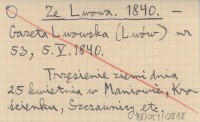 Ze Lwowa. 1840. –
Gazeta Lwowska (Lwów) nr
53, 5.V.1840.
Trzęsienie ziemi dnia
25 kwietnia w Maniowie, Kro-
ścienku, Szczawnicy etc.